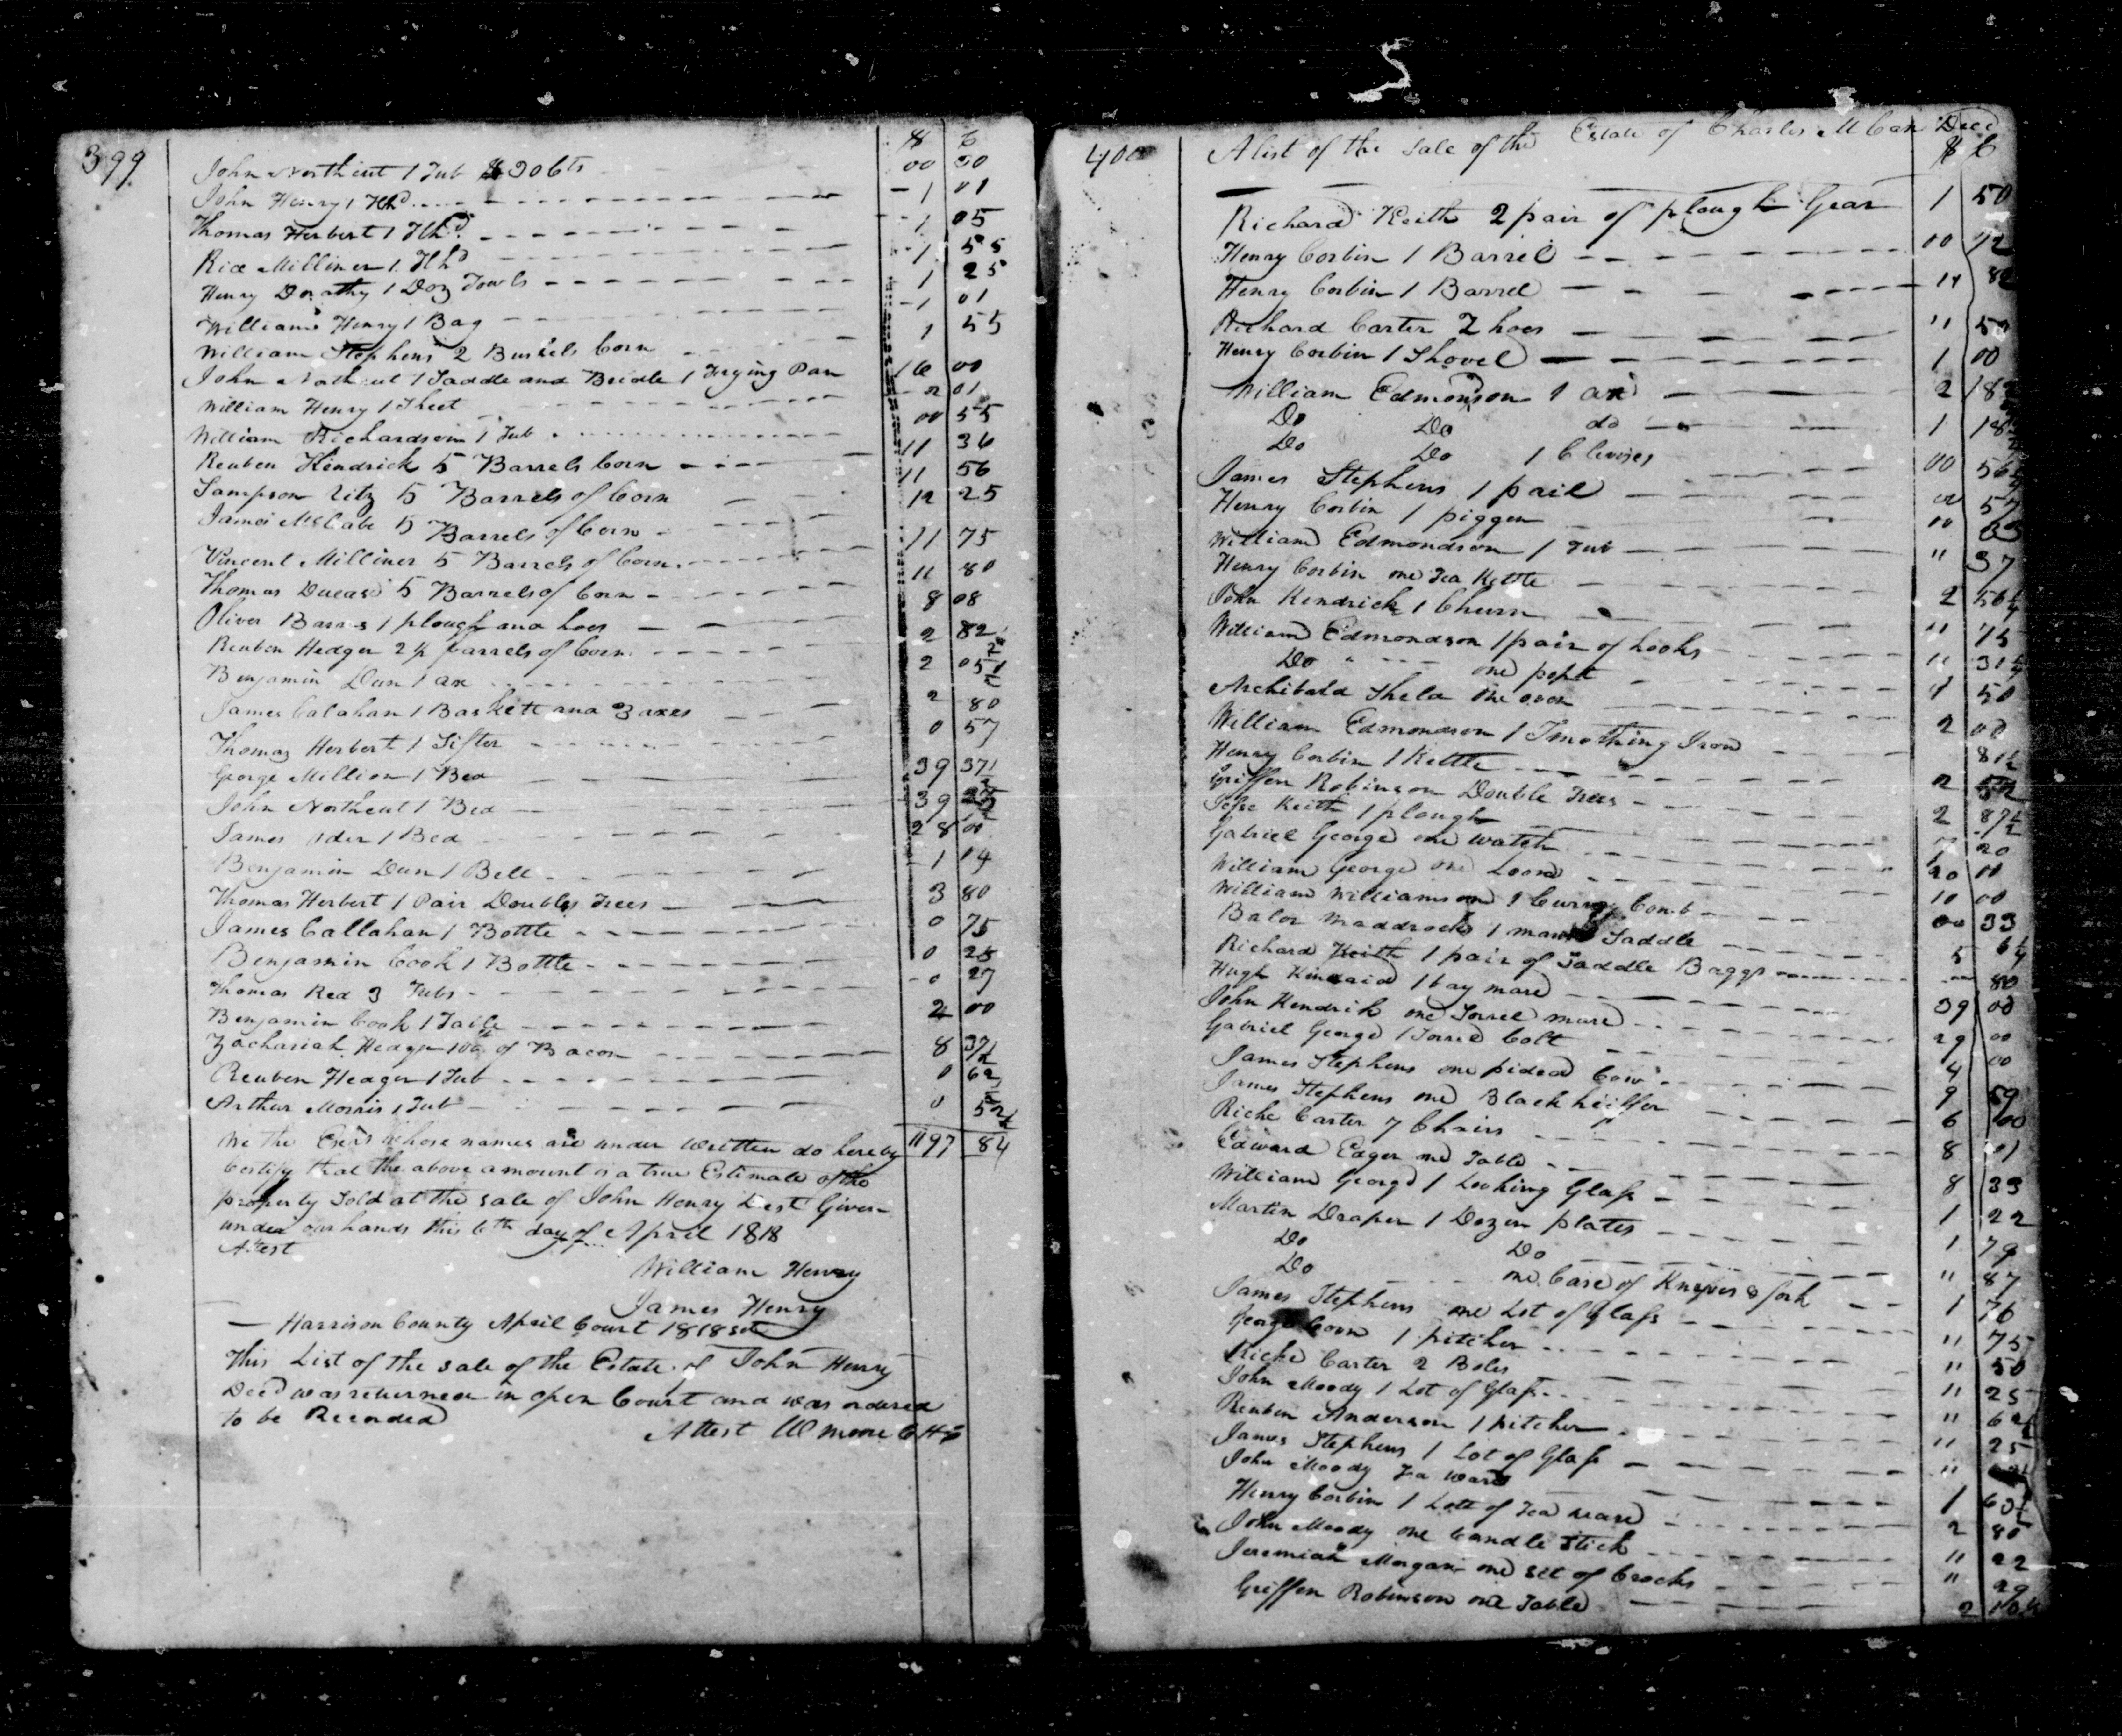 399
$ ¢
John Northcut 1 Tub $ 30 Cts 00 30
John Henry 1 Hhd 1 01
Thomas Herbert 1 Hhd 1 05
Rice Milliner 1 Hhd 1 55
Henry Dorathy 1 Doz Fowls 1 25
William Henry 1 Bag 1 01
William Stephens 2 Bushels Corn 1 55
John Northcut 1 Saddle and Bridle 1 Frying Pan 16 00
William Henry 1 Sheet 2 01
William Richardson 1 Tub 00 55
Reuben Kendrick 5 Barrels Corn 11 36
Sampson Utz 5 Barrels of Corn 11 56
James McCabe 5 Barrels of Corn 12 25
Vincent Milliner 5 Barrels of Corn 11 75
Thomas 5 Barrels of Corn 11 80
Oliver Barnes 1 plough and hoes 8 08
Reuben Hedger 2½ barrels of Corn 2 82½
Benjamin Dun 1 ax 2 05½
James Calahan 1 Baskett and 3 axes 2 80
Thomas Herbert 1 Sifter 0 57
George Million 1 Bed 39 37½
John Northcut 1 Bed 39
James 1 Bed 28 00
Benjamin Dun 1 Bell 1 14
Thomas Herbert 1 Pair Doubles Trees 3 80
James Callahan 1 Bottle 0 75
Benjamin Cook 1 Bottle 0 25
Thomas Red 3 Tubs 0 27
Benjamin Cook 1 Table 2 00
Zachariah Hedger of Bacon 8 37½
Reuben Hedger 1 Tub 0 62½
Arthur Morris 1 Tub 0
1197 84
We the Exers whose names are under written do hereby
Certify that the above amount is a true Estimate of the
property Sold at the sale of John Henry Given
under our hands this 6th day of April 1818
Attest
William Henry
James Henry
Harrison County April Court 1818
This List of the sale of the Estate of John Henry
Decd was returned in open Court and was ordered
to be Recorded
Attest W Moore
400
A list of the Sale of the Estate of Charles McCan Decd
$ ¢
Richard Keith 2 pair of plough Gear 1 50
Henry Corbin 1 Barrel 00
Henry Corbin 1 Barrel
Richard Carter 2 hoes " 50
Henry Corbin 1 Shovel 1 00
William Edmonson 1 ax 2
Do Do do 1
Do Do 1 Clevises 00
James Stephens 1 pail
Henry Corbin 1 piggen
William Edmondson 1 Tub " 37
Henry Corbin one Tea Kettle
John Kendrick 1 Churn 2
William Edmondson 1 pair of hooks " 75
Do one
Archibald one oven 50
William Edmondson 1 Smothing Iron 2 00
Henry Corbin 1 Kettle
Griffen Robinson Double Trees 2
Jesse Keith 1 plough 2 87½
Gabriel George one watch 20
William George one Loom
William Williamson 1 Curry Comb
Balor Maddrock 1 mans Saddle
Richard Keith 1 pair of Saddle Baggs
Hugh Kincaid 1 bay mare 39 00
John Kendrick one Sorrel mare 29 00
Gabriel George 1 Sorrel Colt 4 00
James Stephens one pided Cow 9
James Stephens one Black heiffer 6 00
Riche Carter 7 Chairs 8 01
Edward Eager one Table 8 33
William George 1 Looking Glass 1 22
Martin Draper 1 Dozen plates 1 79
Do Do " 87
Do one Case of Knives & fork 1 76
James Stephens one Lot of Glass " 75
George Coon 1 pitcher " 50
Riche Carter 2 Boles " 25
John Moody 1 Lot of Glass
Reuben Anderson 1 pitcher " 25
James Stephens 1 Lot of Glass
John Moody Tea ware
Henry Corbin 1 Lott of Tea ware 2 80
John Moody one Candle Stick " 22
Jeremiah Morgan one set of Crocks " 29
Griffen Robinson one Table 2